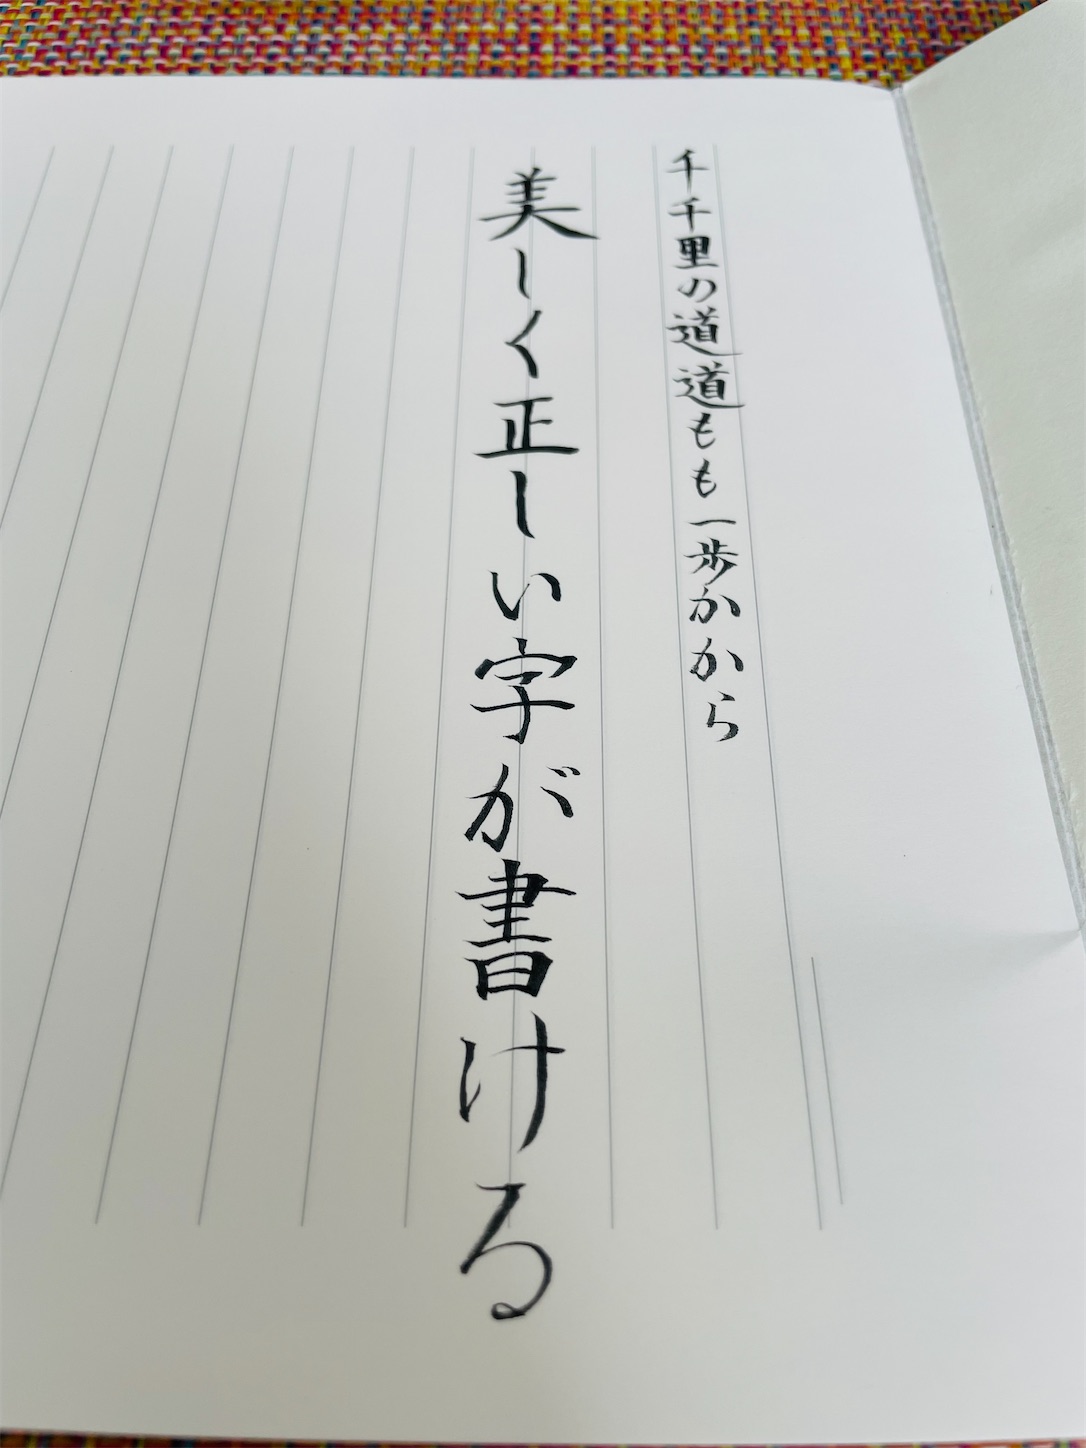 千千里の道道もも一歩かから
美しく正しい字が書ける